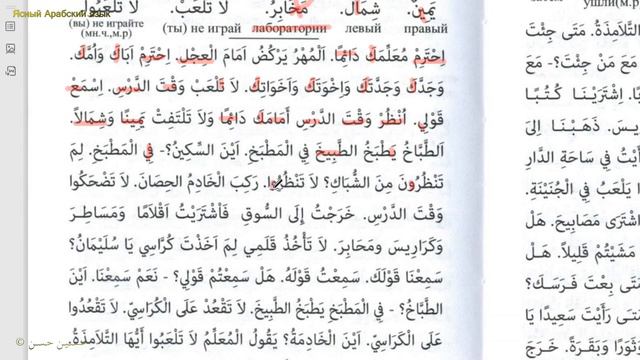 Ясный Арабский язык
يَمِينٌ. شِمَالٌ. مَخَابِرُ. لَا تَلْعَبْ. لَا تَلْعَبُوا
правый левый лаборатории (ты) не играй (вы) не играйте (мн.ч.,м.р)
اِحْتَرِمْ مُعَلِّمَكَ دَائِمًا. اَلْمُهْرُ يَرْكُضُ اَمَامَ الْعِجْلِ. اِحْتَرِمْ اَبَاكَ وَاُمَّكَ.
وَجَدَّكَ وَجَدَّتَكَ وَاِخْوَتَكَ وَاَخَوَاتِكَ. لَا تَلْعَبْ وَقْتَ الدَّرْسِ. اِسْمَعْ
قَوْلِي. اُنْظُرْ وَقْتَ الدَّرْسِ أَمَامَكَ دَائِمًا وَلَا تَلْتَفِتْ يَمِينًا وَشِمَالًا.
اَلطَّبَّاخُ يَطْبَخُ الطَّبِيخَ فِي الْمَطْبَخِ. اَيْنَ السِّكِّينُ؟- فِي الْمَطْبَخِ. لِمَ
تَنْظُرُونَ مِنَ الشُّبَاكِ؟ لَا تَنْظُرُوا. رَكِبَ الْخَادِمُ الْحِصَانَ. لَا تَضْحَكُوا
وَقْتَ الدَّرْسِ. خَرَجْتُ اِلَى السُّوقِ فَاشْتَرَيْتُ اَقْلَامًا وَمَسَاطِرَ
وَكَرَارِيسَ وَمَحَابِرَ. لَا تَأْخُذْ قَلَمِي لِمَ اَخَذْتَ كُرَّاسِي يَا سُلَيْمَانُ؟
سَمِعْنَا قَوْلَكَ. سَمِعْتُ قَوْلَهُ. هَلْ سَمِعْتُمْ قَوْلِي؟ - نَعَمْ سَمِعْنَا. اَيْنَ
الطَّبَّاخُ؟ - فِي الْمَطْبَخِ يَطْبَخُ الطَّبِيخَ. لَا تَقْعُدْ عَلَى الْكُرَاسِيِّ. لَا تَقْعُدُوا
عَلَى الْكَرَاسِيِّ. اَيْنَ الْخَادِمَةُ؟ يَقُولُ الْمُعَلِّمُ لَا تَلْعَبُوا اَيُّهَا التَّلَامِذَةُ.
ушли(м.р)
التَّلَامِذَةُ. مَتَى جِئْتَ
مَعَ مَنْ جِئْتَ؟- مَعَ
اِشْتَرَيْنَا كُتُبًا
ذَهَبْنَا اِلَى
فِي سَاحَةِ الدَّارِ
يَلْعَبُ فِي الْجُنَيْنَةِ.
مَصَابِيحَ. هَلْ
مَشَيْتُمْ قَلِيلًا. هَلْ
مَتَى بِعْتَ فَرَسَكَ؟
رَأَيْتَ سَعِيدًا يَا
وَبَقَرَةً. خَرَجَ